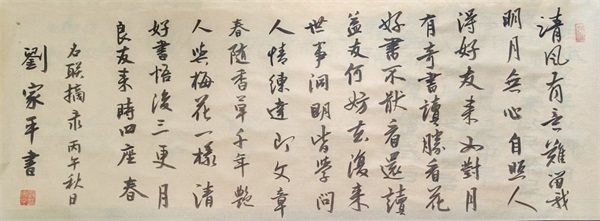 清风有意难留我
明月无心自照人
得好友来如对月
有奇书读胜看花
好书不厌看还读
益友何妨去复来
世事洞明皆学问
人情练达即文章
春随香草千年艳
人与梅花一样清
好书悟后三更月
良友来时四座春
名联摘录 丙午秋日
劉家平書